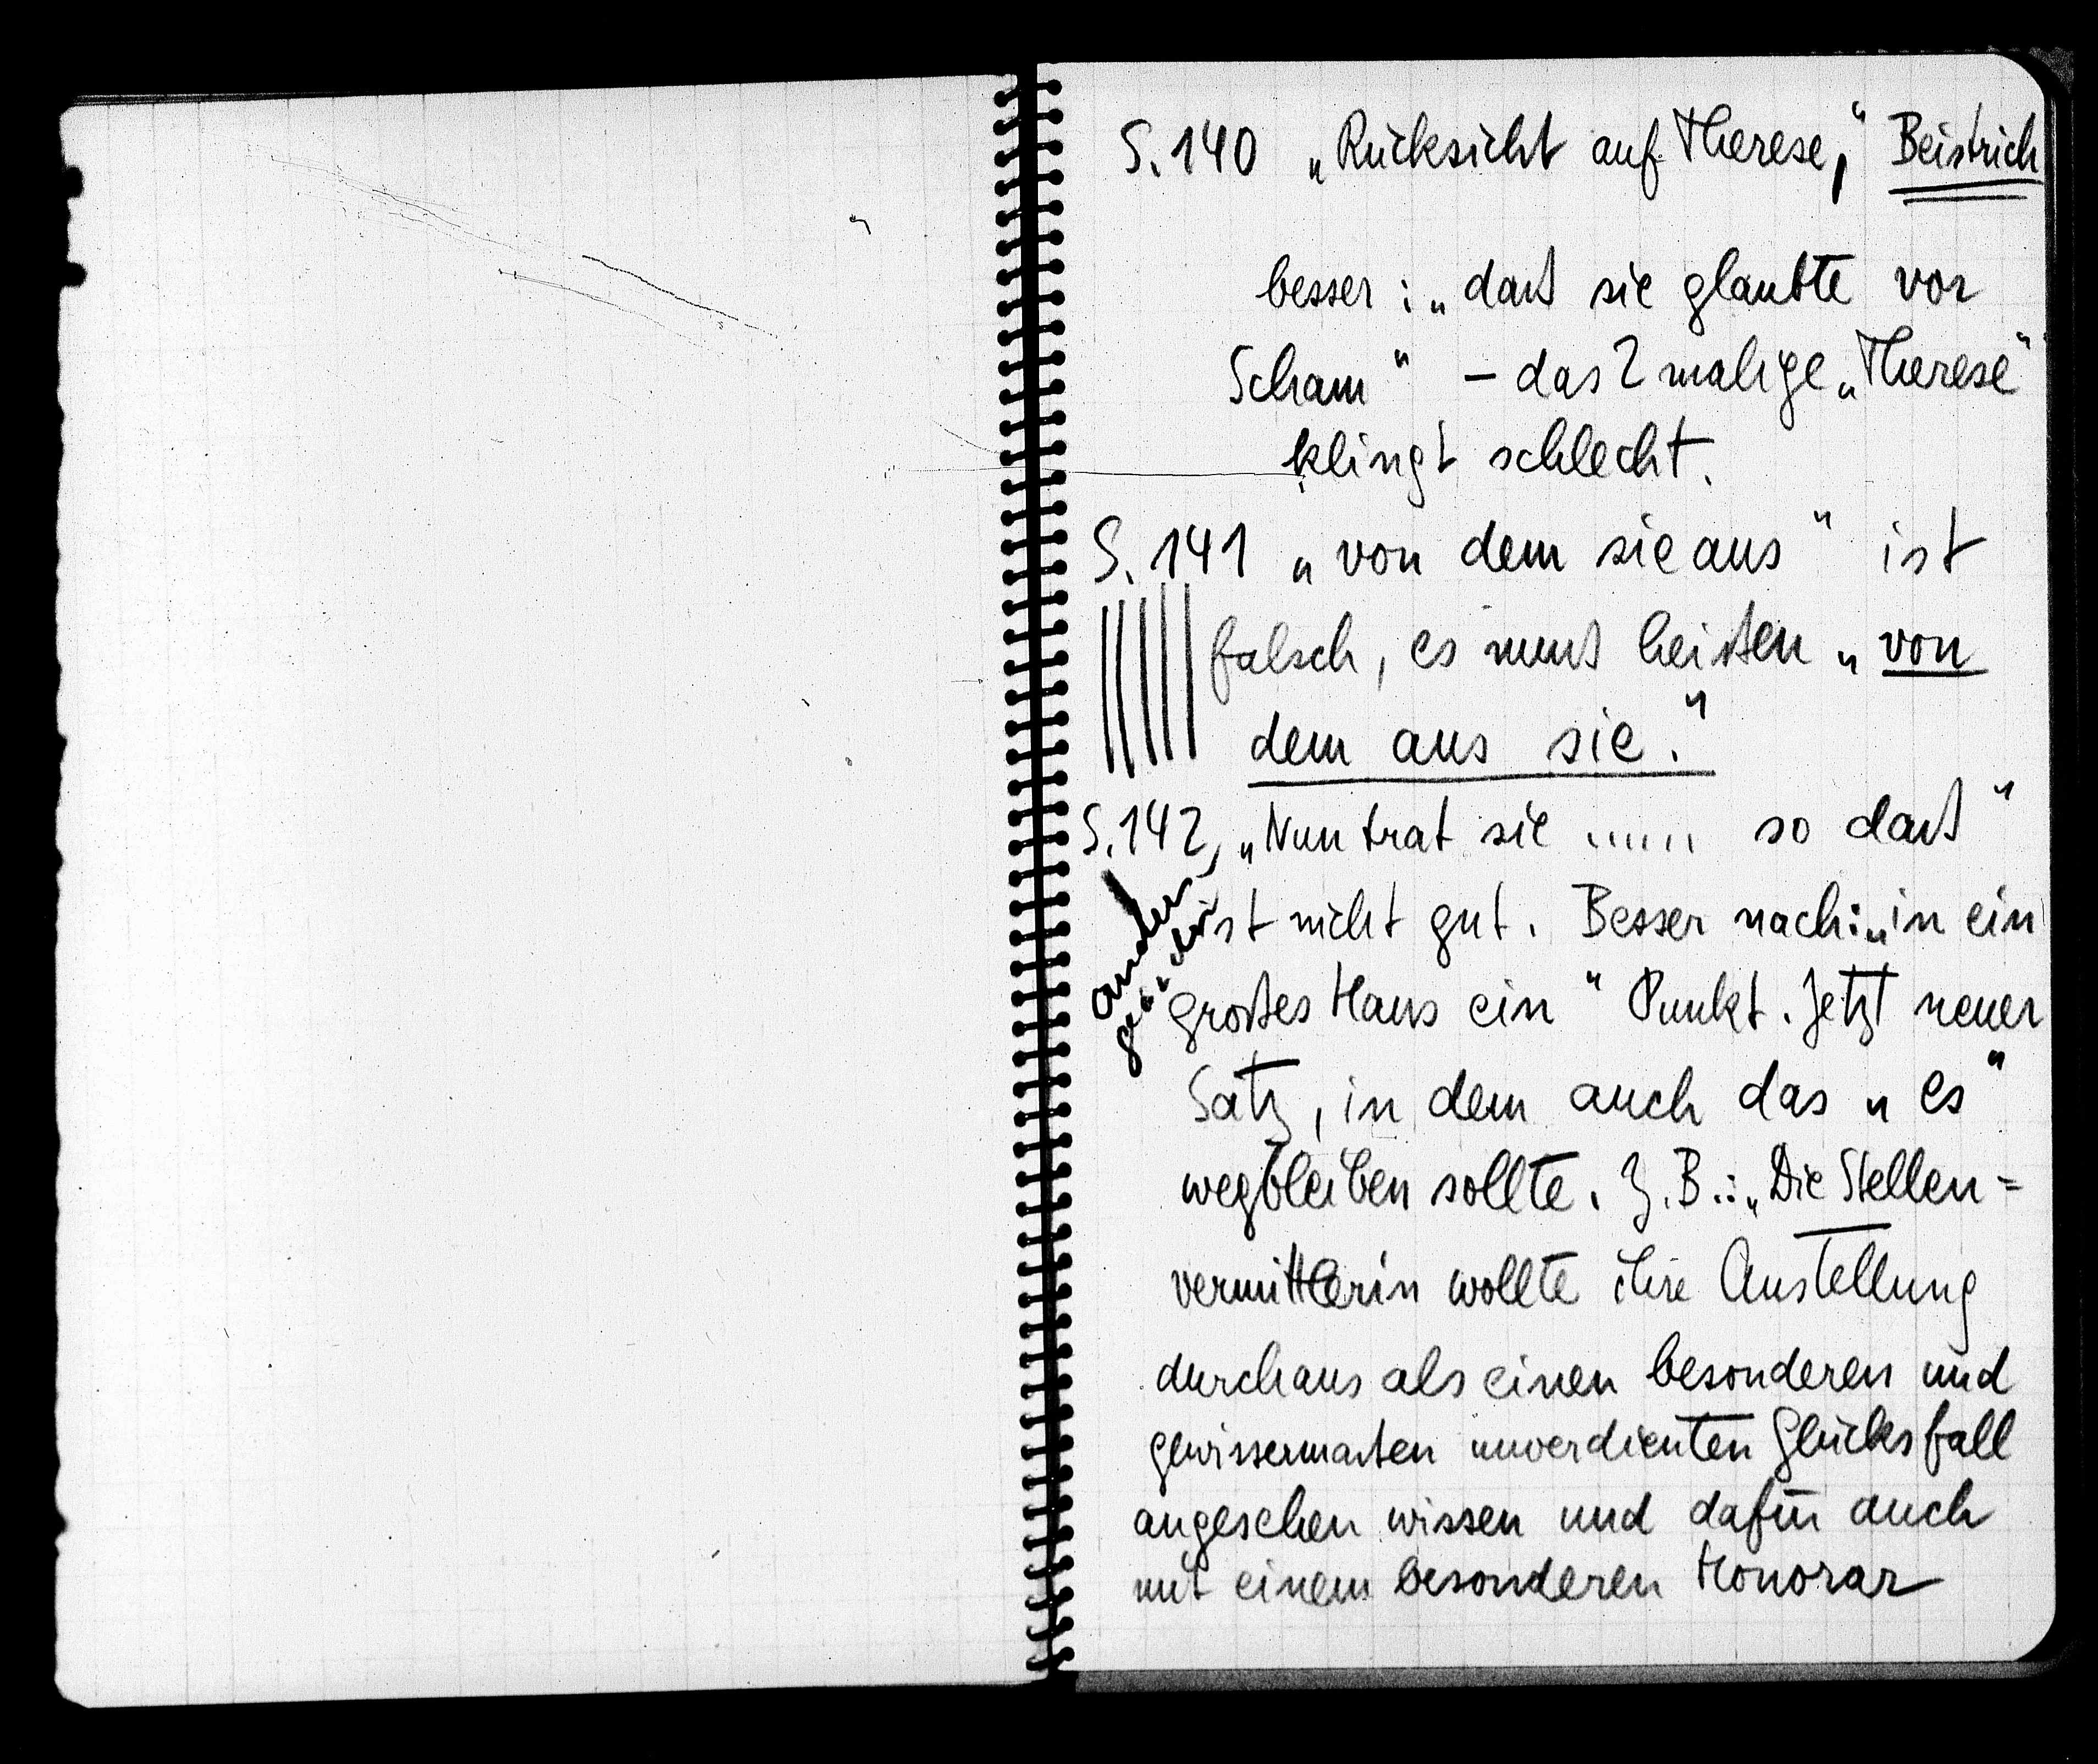 S. 140 „Rücksicht auf Therese,“ Beistrich
besser: „daß sie glaubte vor
Scham“ – das 2 malige „Therese“
klingt schlecht.
S. 141 „von dem sie aus“ ist
falsch, es muß heißen „von
dem aus sie.“
S. 142, „Nun trat sie ...... so daß“
ist nicht gut. Besser nach: „in ein
großes Haus ein“ Punkt. Jetzt neuer
Satz, in dem auch das „es“
wegbleiben sollte. Z. B.: „Die Stellen=
vermittlerin wollte ihre Anstellung
durchaus als einen besonderen und
gewissermaßen unverdienten Glücksfall
angesehen wissen und dafür auch
mit einem besonderen Honorar